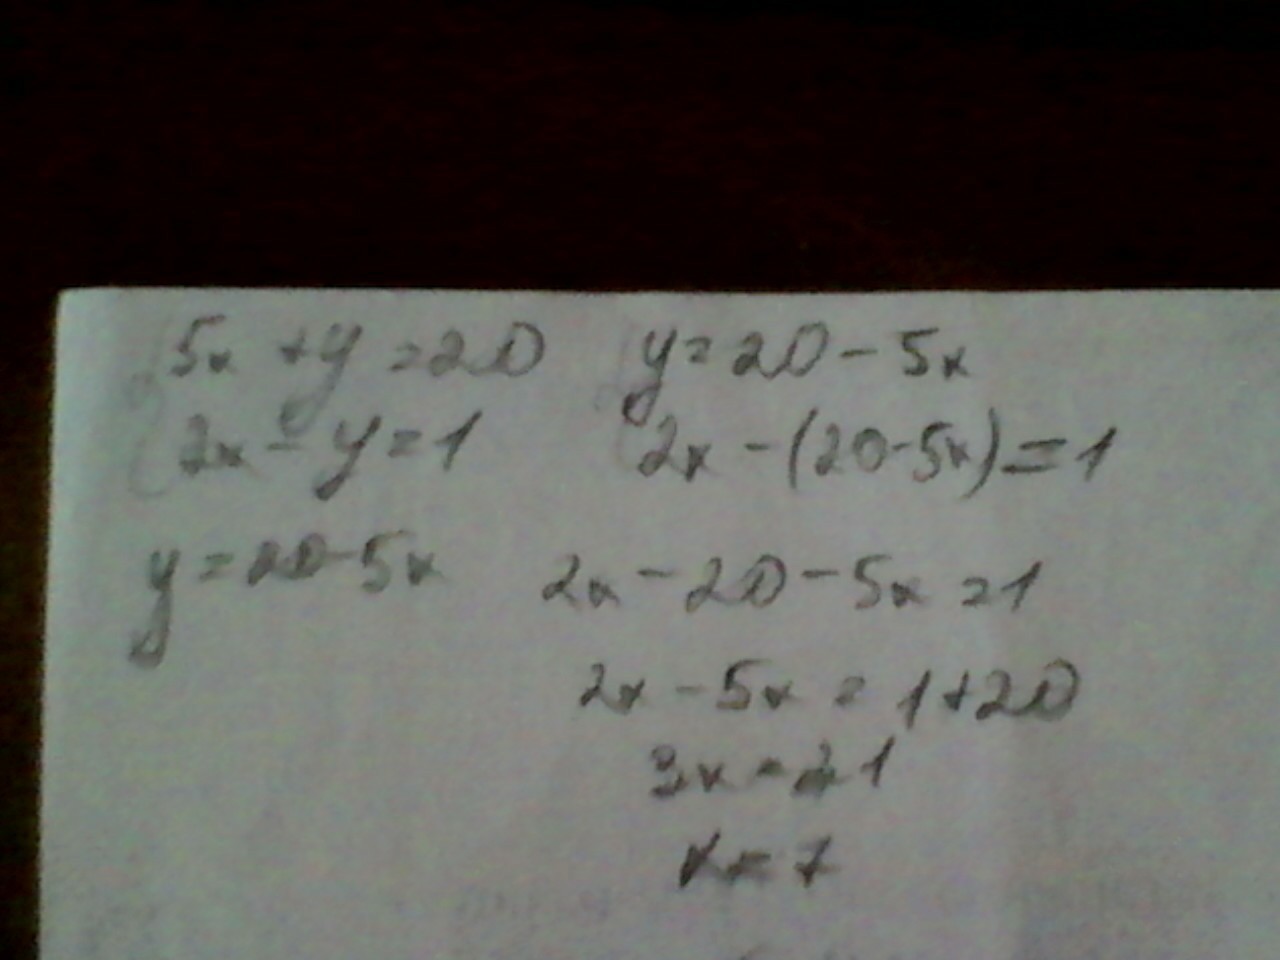 5x + y = 20 y = 20 - 5x
2x - y = 1 2x - (20-5x) = 1
y = 20-5x 2x - 20 - 5x = 1
2x - 5x = 1+20
3x = 21
x = 7